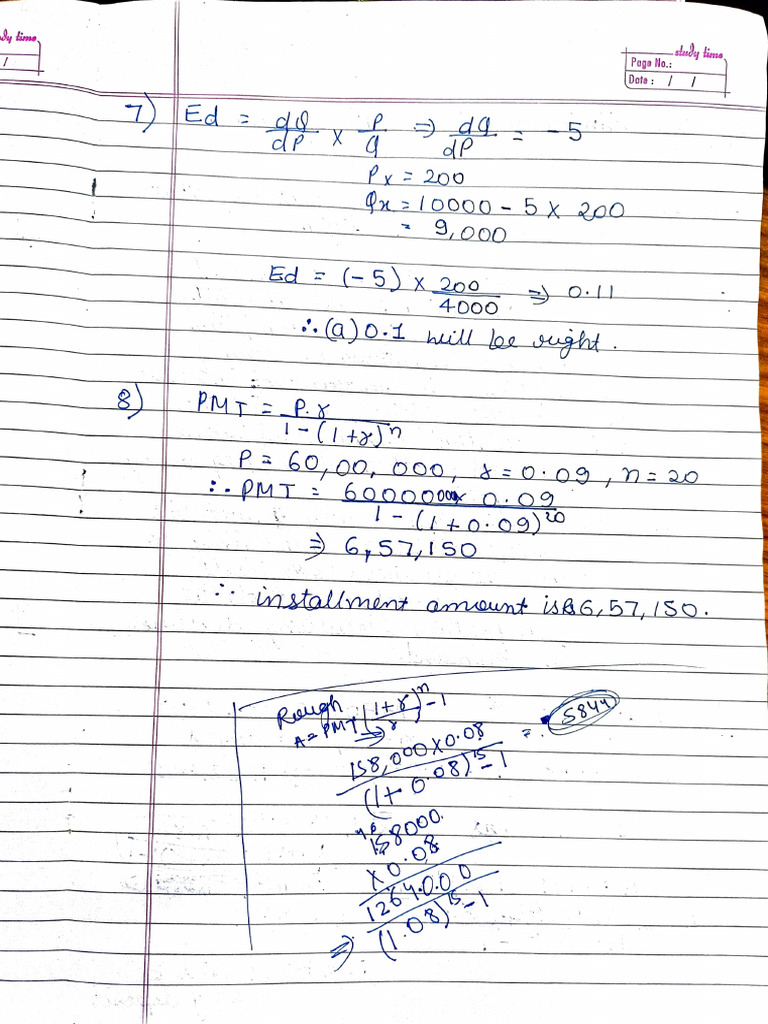 dy time
/
study time
Page No.:
Date : / /
7) Ed = dQ/dP × P/q ⇒ dq/dP = -5
Px = 200
Qx = 10000 - 5 × 200
= 9,000
Ed = (-5) × 200/4000 ⇒ 0.11
∴ (a) 0.1 will be right.
8) PMT = P.r/1-(1+r)^n
P = 60,00,000, r = 0.09, n = 20
∴ PMT = 6000000× 0.09/1-(1+0.09)^20
⇒ 6,57,150
∴ installment amount is 6,57,150.
Rough
A = PMT (1+r)^n-1/r
158,000×0.08/(1+0.08)^15-1 = 5844
158000
×0.08
1264.0.00/(1.08)^15-1
⇒